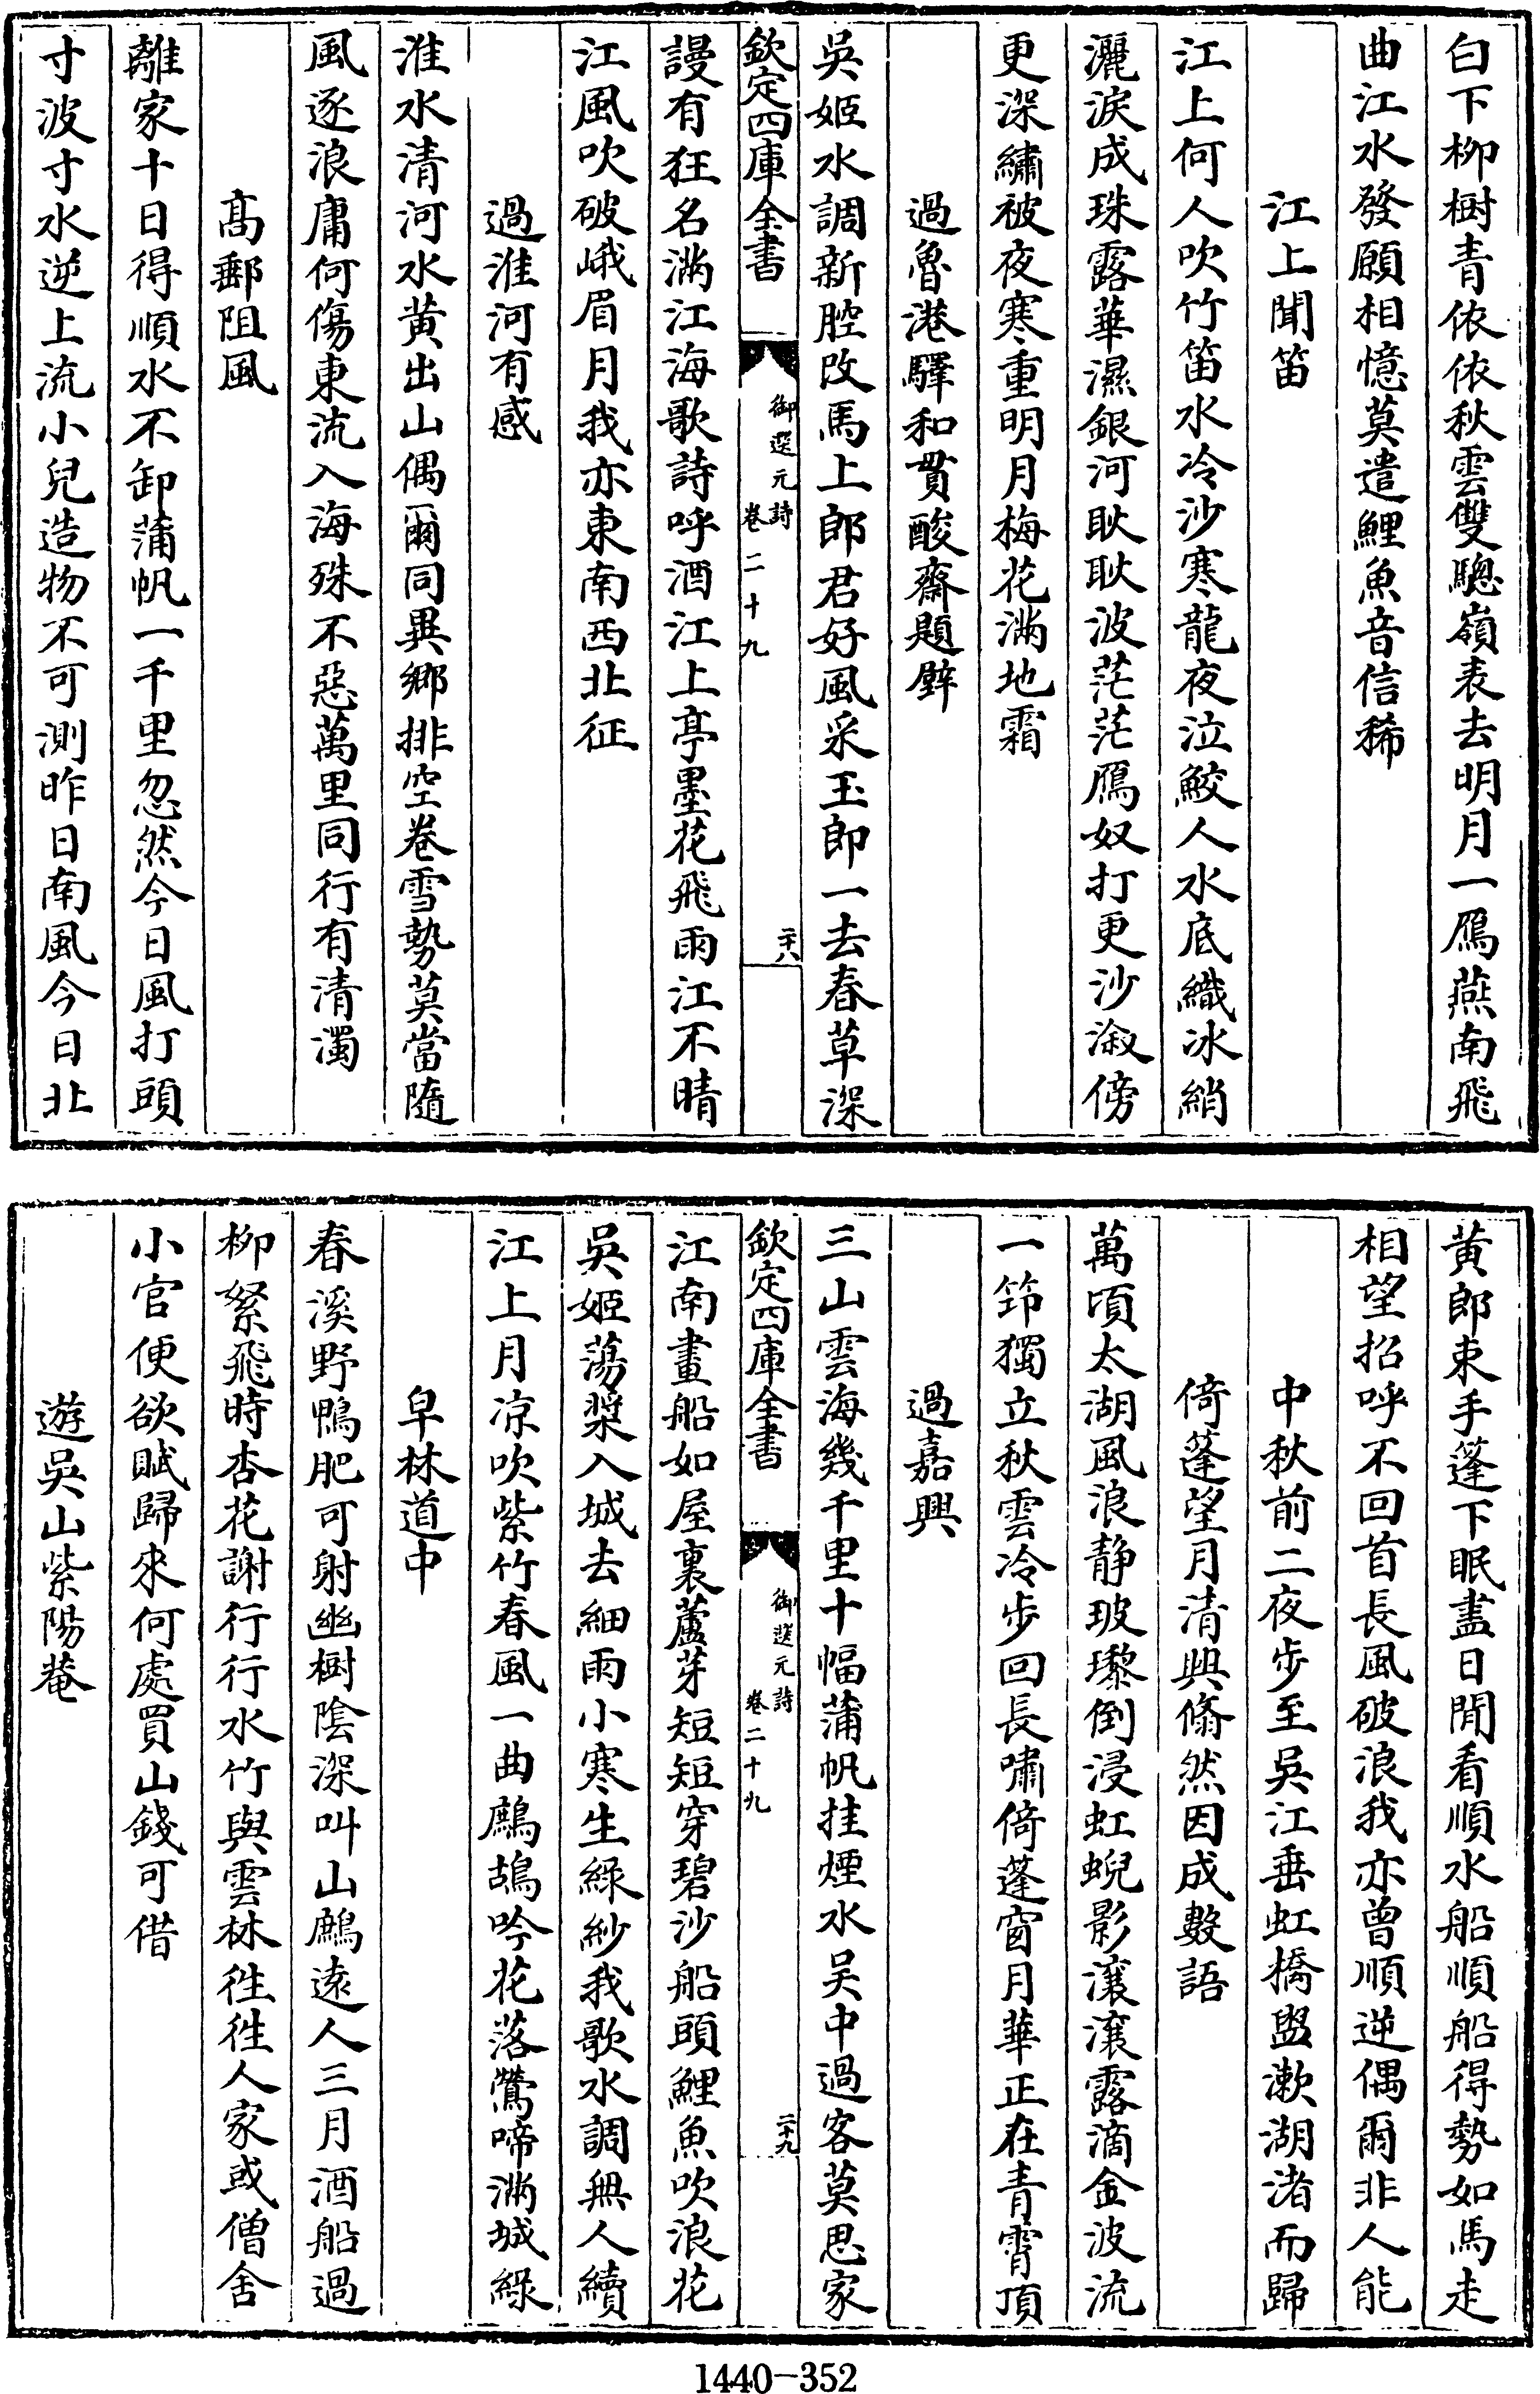 白下柳樹青依依秋雲雙驄嶺表去明月一鴈燕南飛
曲江水發願相憶莫遣鯉魚音信稀
江上聞笛
江上何人吹竹笛水冷沙寒龍夜泣鮫人水底織冰綃
灑淚成珠露華濕銀河耿耿波茫茫鴈奴打更沙溆傍
更深繡被夜寒重明月梅花滿地霜
過魯港驛和貫酸齋題壁
吳姬水調新腔改馬上郎君好風采玉郎一去春草深
欽定四庫全書
御選元詩
卷二十九
二十八
謾有狂名滿江海歌詩呼酒江上亭墨花飛雨江不晴
江風吹破峨眉月我亦東南西北征
過淮河有感
淮水清河水黄出山偶爾同異鄉排空卷雪勢莫當隨
風逐浪庸何傷東流入海殊不惡萬里同行有清濁
髙郵阻風
離家十日得順水不卸蒲帆一千里忽然今日風打頭
寸波寸水逆上流小兒造物不可測昨日南風今日北
黄郎束手蓬下眠盡日閒看順水船順船得勢如馬走
相望招呼不回首長風破浪我亦曾順逆偶爾非人能
中秋前二夜步至吳江垂虹橋盥漱湖渚而歸
倚蓬望月清興翛然因成數語
萬頃太湖風浪静玻瓈倒浸虹蜺影瀼瀼露滴金波流
一笻獨立秋雲冷步回長嘯倚蓬窗月華正在青霄頂
過嘉興
三山雲海幾千里十幅蒲帆挂煙水吴中過客莫思家
欽定四庫全書
御選元詩
卷二十九
二十九
江南畫船如屋裏蘆芽短短穿碧沙船頭鯉魚吹浪花
吳姬蕩槳入城去細雨小寒生緑紗我歌水調無人續
江上月凉吹紫竹春風一曲鷓鴣吟花落鶯啼滿城緑
早林道中
春溪野鴨肥可射幽樹陰深叫山鷓逺人三月酒船過
柳絮飛時杏花謝行行水竹與雲林徃徃人家或僧舍
小官便欲賦歸來何處買山錢可借
遊吳山紫陽菴
1440-352